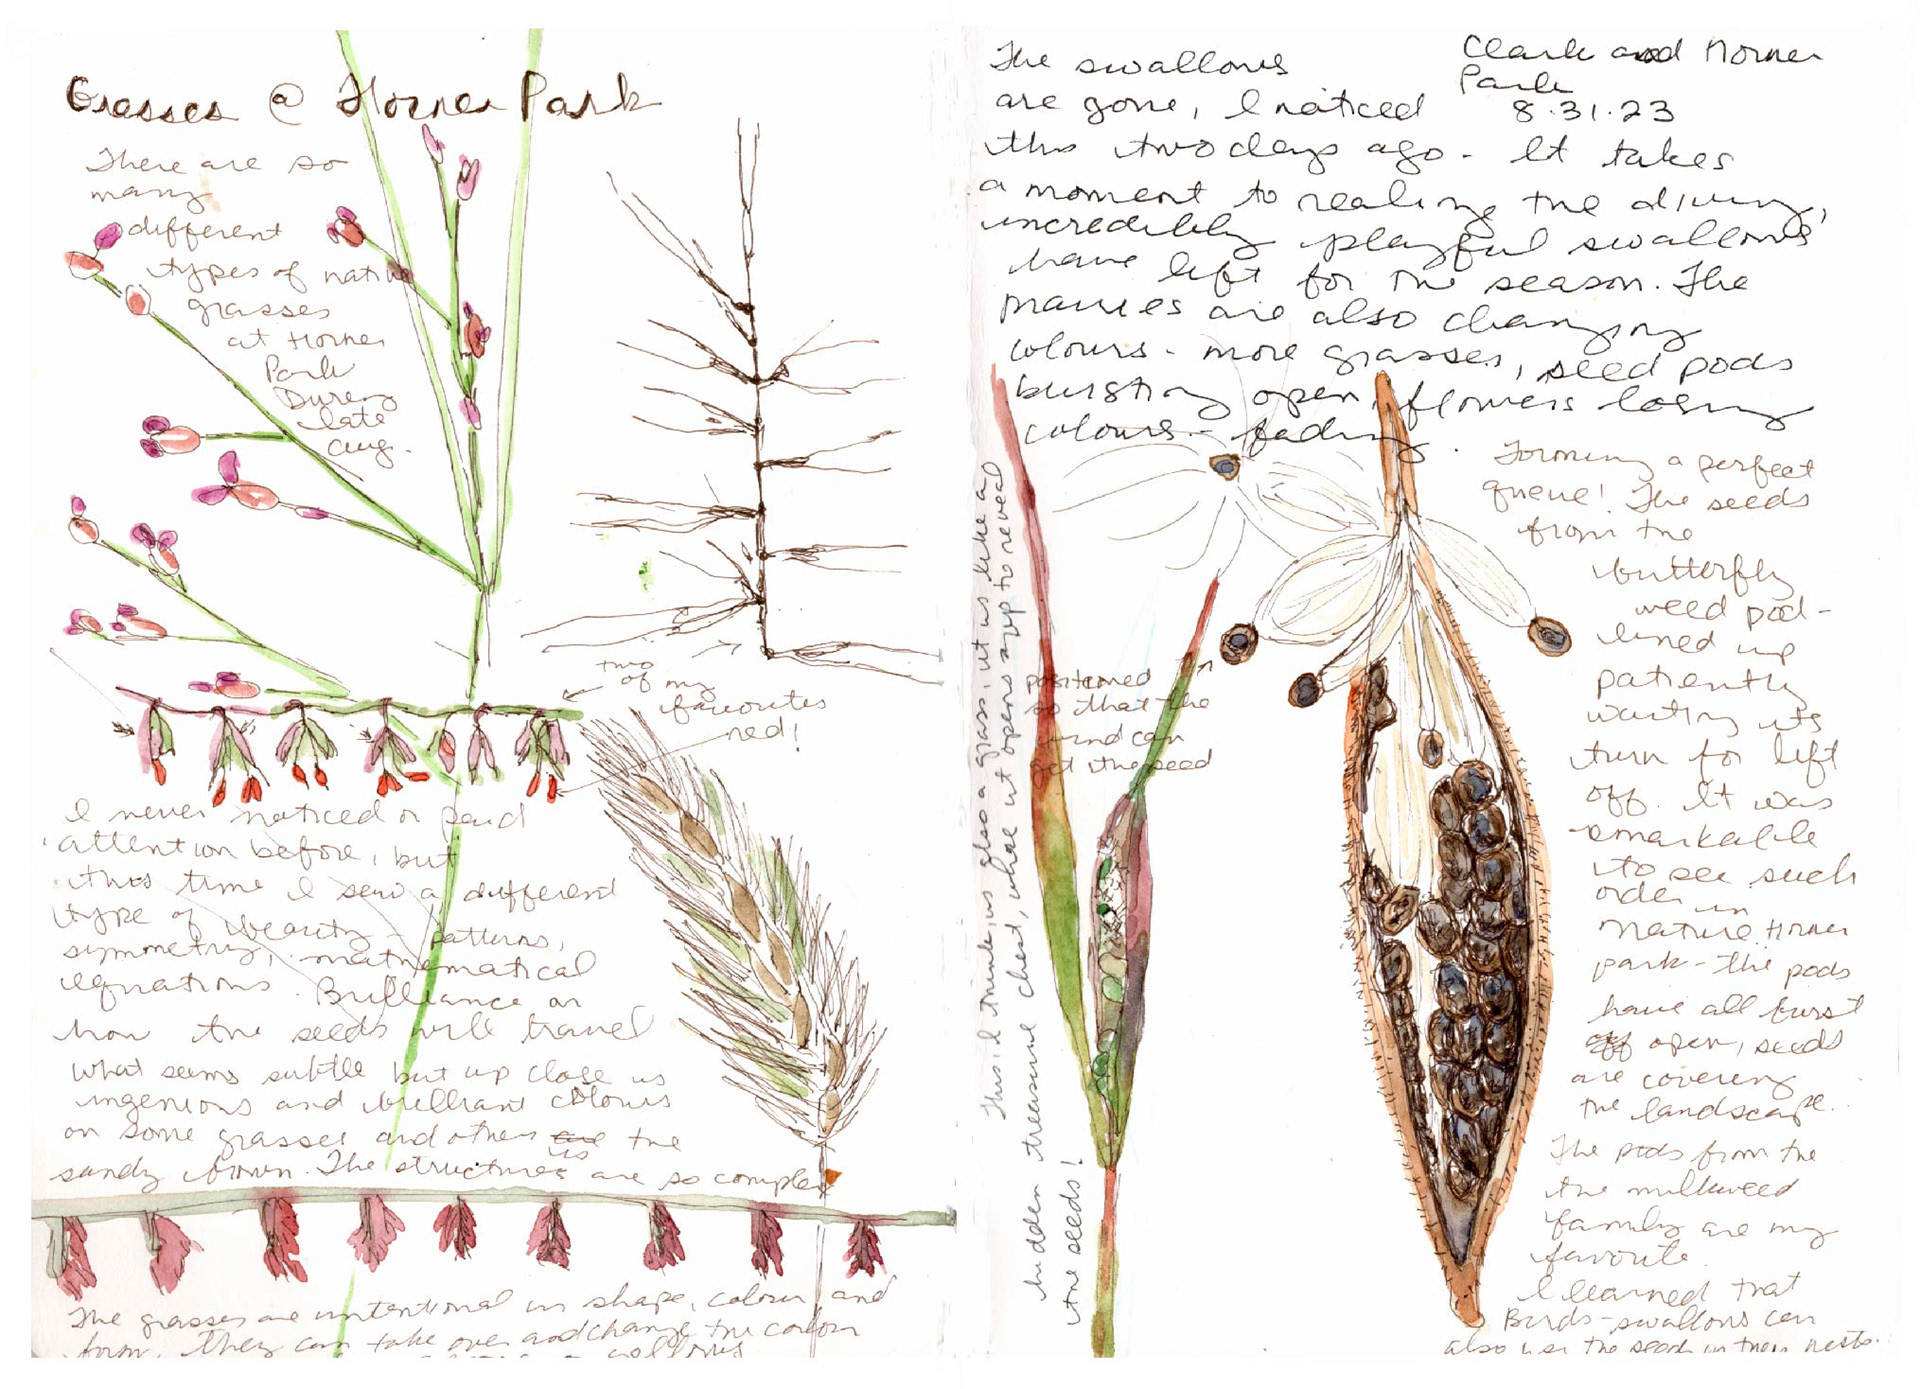 Grasses @ Horner Park
There are so
many
different
types of native
grasses
at Horner
Park
During
late
Aug.
two
of my
favourites
red!
I never noticed or paid
attention before, but
this time I saw a different
type of beauty - patterns,
symmetry, mathematical
equations. Brilliance on
how the seeds will travel
what seems subtle but up close is
ingenious and brilliant colours
on some grasses and others the
is
sandy brown. The structures are so complex
The grasses are intentional in shape, colour, and
form. They can take over and change the colour
The swallows
are gone, I noticed
this two days ago - It takes
a moment to realize the diving,
incredibly playful swallows
have left for the season. The
prairies are also changing
colours - more grasses, seed pods
bursting open, flowers losing
colours - fading.
Clark and Horner
Park
8.31.23
This, I think, is also a grass, it is like a
hidden treasure chest, whose it opens up to reveal
the seeds!
positioned
so that the
wind can
get the seed
Forming a perfect
queue! The seeds
from the
butterfly
weed pod -
lined up
patiently
waiting its
turn for left
off. It was
remarkable
to see such
order in
nature. Horner
park - the pods
have all burst
off open, seeds
are covering
the landscape.
The pods from the
the milkweed
family are my
favorite.
I learned that
Birds - swallows can
also use the seeds in their nests.